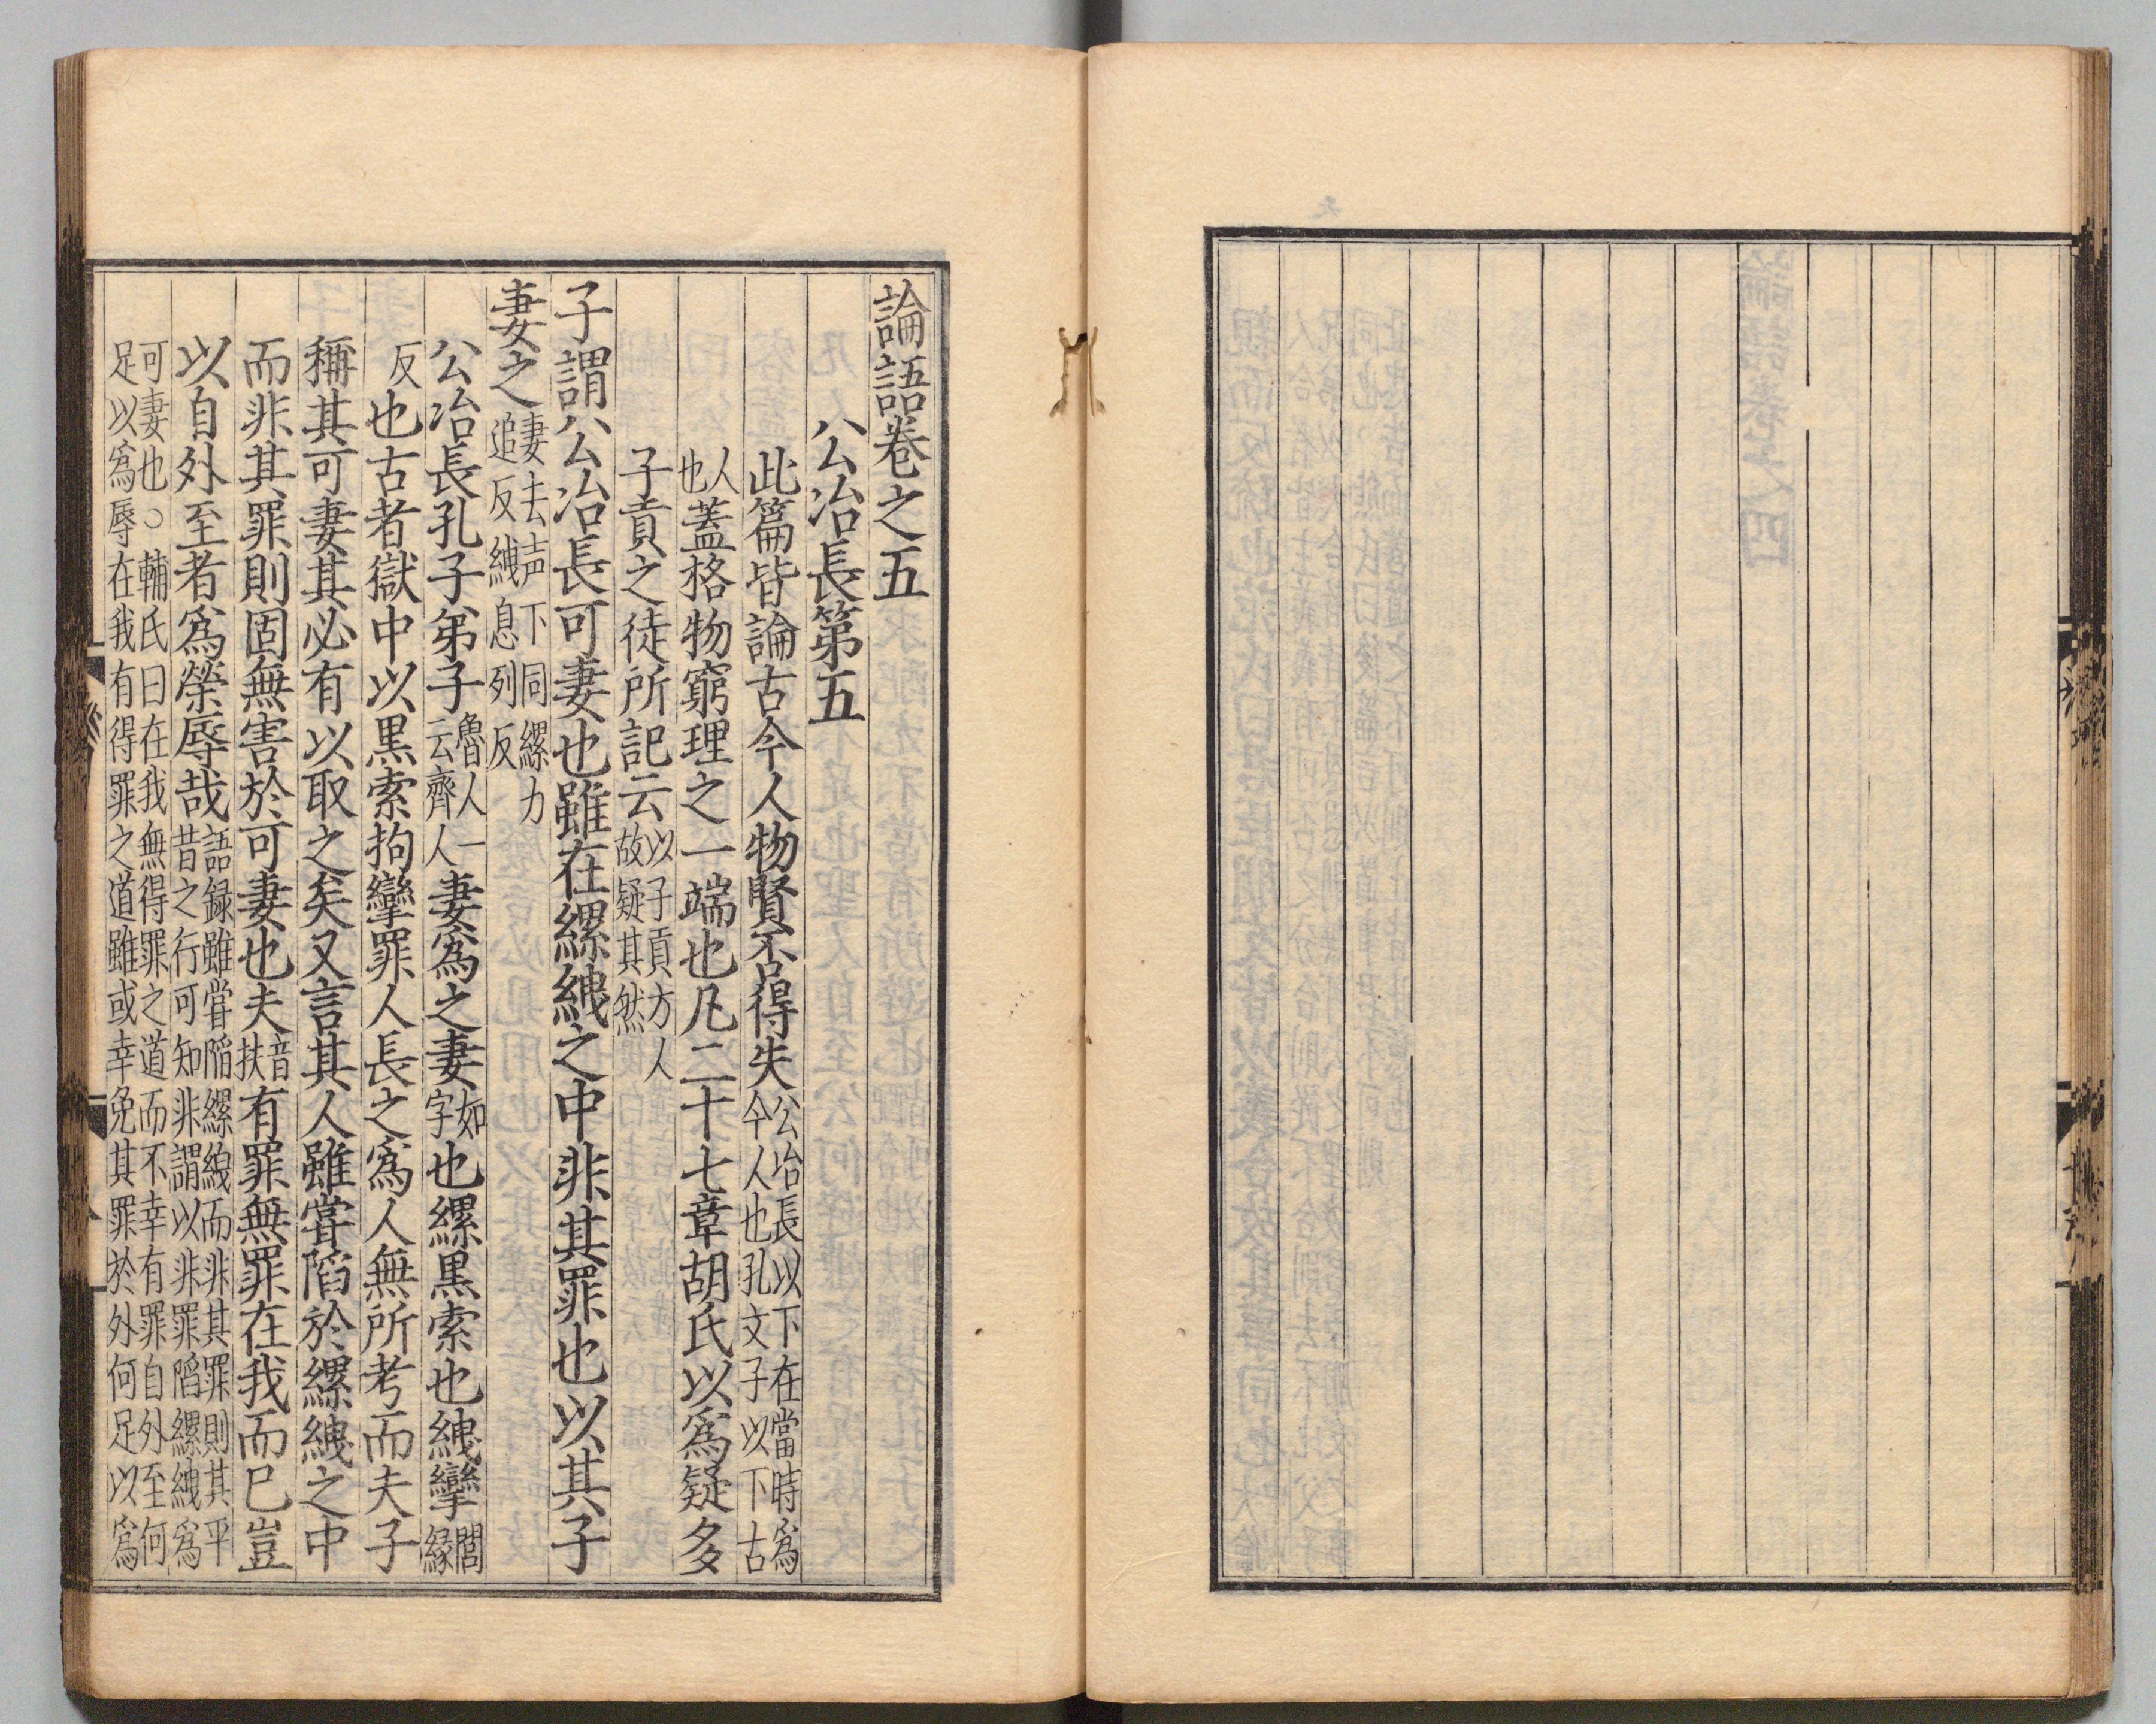 論語卷之五
公冶長第五
此篇皆論古今人物賢否得失公冶長以下在當時爲今人也孔文子以下古
人也蓋格物窮理之一端也凡二十七章胡氏以爲疑多
子貢之徒所記云以子貢方人故疑其然
子謂公冶長可妻也雖在縲絏之中非其罪也以其子
妻之妻去声下同縲力追反絏息列反
公冶長孔子弟子魯人一云齊人妻爲之妻如字也縲黒索也絏攣閭緣
反也古者獄中以黒索拘攣罪人長之爲人無所考而夫子
稱其可妻其必有以取之矣又言其人雖甞陷於縲絏之中
而非其罪則固無害於可妻也夫音扶有罪無罪在我而已豈
以自外至者爲榮辱哉語録雖甞陷縲絏而非其罪則其平昔之行可知非謂以非罪陷縲絏爲
可妻也○輔氏曰在我無得罪之道而不幸有罪自外至何足以爲辱在我有得罪之道雖或幸免其罪於外何足以爲